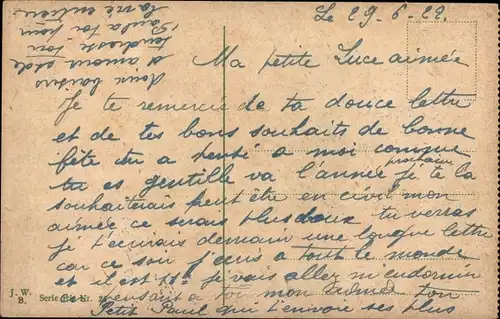 Le 29-6-22.
Ma petite Luce aimée
Je te remercie de ta douce lettre
et de tes bons souhaits de bonne
fête tu a pensé a moi comme
tu es gentille va l'année prochaine je te la
souhaiterais peut être en civil mon
aimée ce serais plus doux tu verras
je t'ecrirais demain une longue lettre
car ce soir j'ecris a tout le monde
et il est 11h je vais aller m'endormir
pensant a toi mon ton
Petit Paul qui t'envoie ses plus
doux baisers
et amour
tendresse ton
Paul a toi pour
la vie entière
J. W.
B.
Serie Nr.